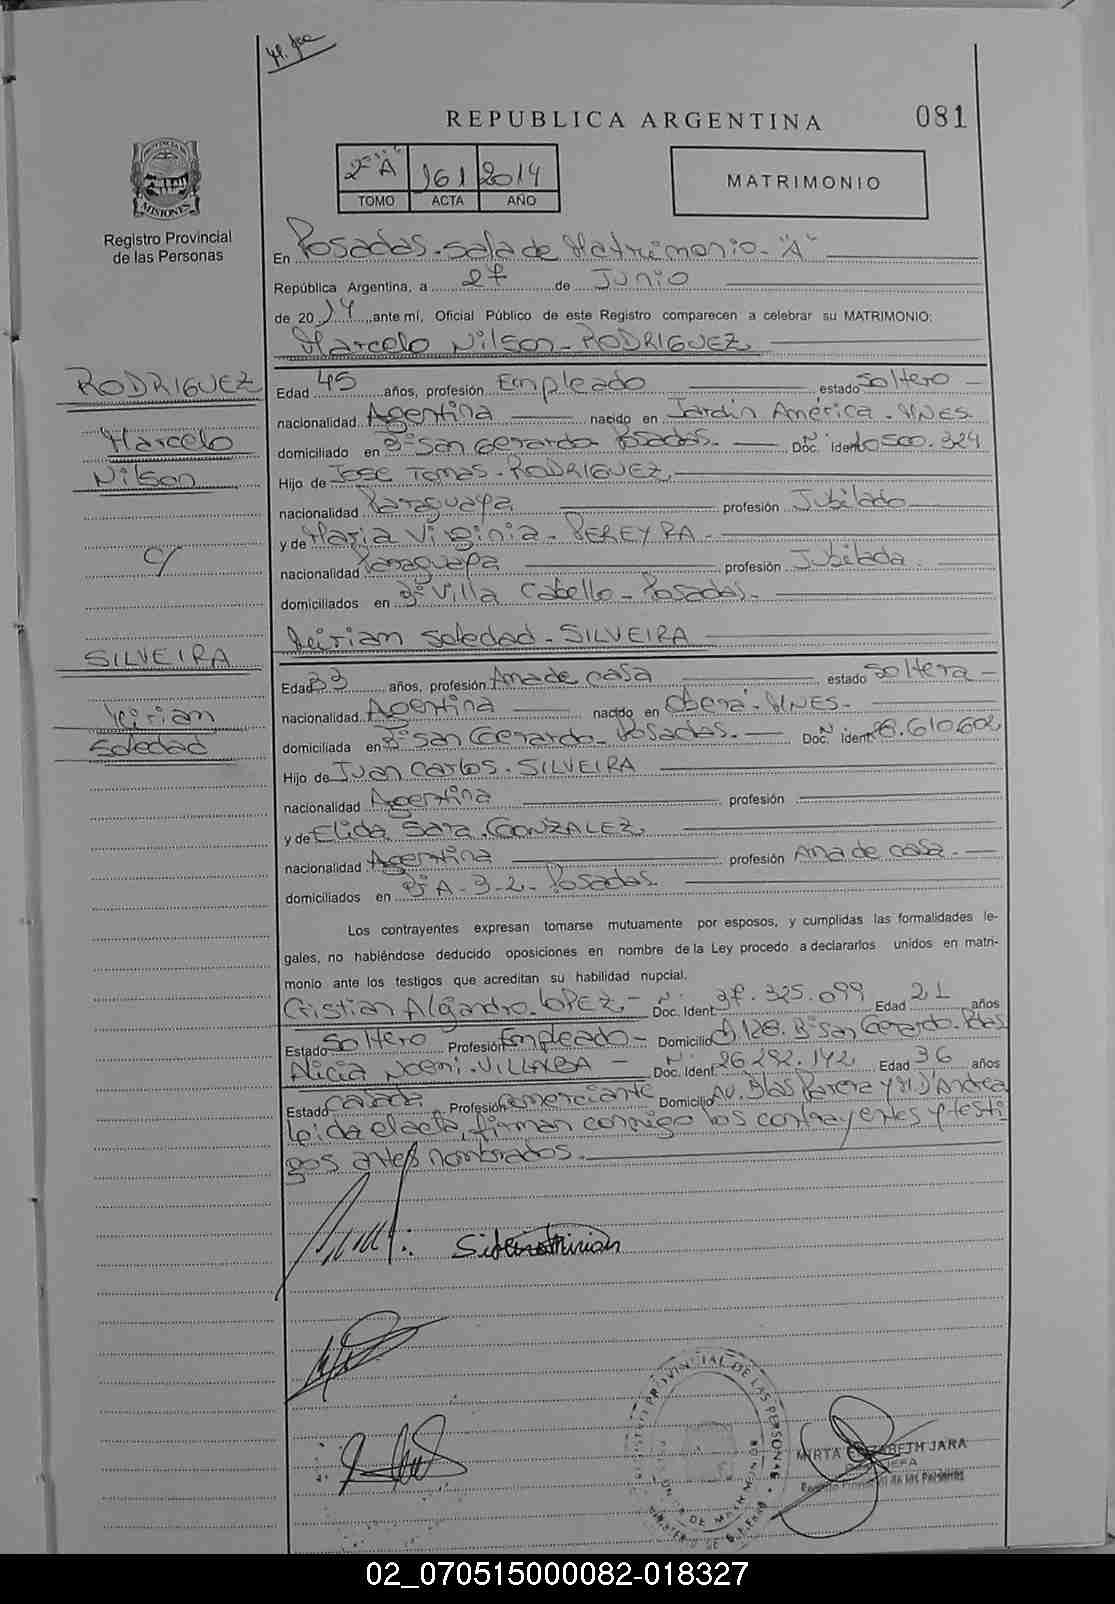 REPUBLICA ARGENTINA
081
2º "A" 161 2014
TOMO ACTA AÑO
MATRIMONIO
PROVINCIA DE
MISIONES
Registro Provincial
de las Personas
En Posadas - Sala de Matrimonio - "A"
República Argentina, a 27 de Junio
de 2014, ante mí, Oficial Público de este Registro comparecen a celebrar su MATRIMONIO:
Marcelo Nilson - RODRIGUEZ
RODRIGUEZ
Marcelo
Nilson
c/
SILVEIRA
Mirian
Soledad
Edad 45 años, profesión Empleado estado Soltero
nacionalidad Agentina nacido en Jardín América - MNES.
domiciliado en Bº San Gerardo - Posadas. Doc. Ident. Nº 20.500.324
Hijo de Jose Tomas - RODRIGUEZ
nacionalidad Paraguaya profesión Jubilado
y de Maria Virginia - PEREYRA -
nacionalidad Paraguaya profesión Jubilada
domiciliados en Bº Villa Cabello - Posadas -
Mirian Soledad - SILVEIRA
Edad 33 años, profesión Ama de casa estado Soltera
nacionalidad Agentina nacido en Oberá - MNES -
domiciliada en Bº San Gerardo - Posadas. Doc. Ident. Nº 28.610.602
Hijo de Juan Carlos - SILVEIRA
nacionalidad Agentina profesión
y de Elida Sara GONZALEZ
nacionalidad Agentina profesión Ama de casa -
domiciliados en A-3-2 - Posadas
Los contrayentes expresan tomarse mutuamente por esposos, y cumplidas las formalidades le-
gales, no habiéndose deducido oposiciones en nombre de la Ley procedo a declararlos unidos en matri-
monio ante los testigos que acreditan su habilidad nupcial.
Cristian Alejandro - LOPEZ - Doc. Ident. Nº 37.325.099 Edad 21 años
Estado Soltero Profesión Empleado - Domicilio 128. Bº San Gerardo - Pdas
Alicia Noemi - VILLALBA - Doc. Ident. Nº 26.292.142 Edad 36 años
Estado Casada Profesión Comerciante Domicilio Av. Blas Parera y D'Andrea
Leida el acta, firman conmigo los contrayentes y testi
gos antes nombrados.
REGISTRO PROVINCIAL DE LAS PERSONAS
MIRTA ELIZABETH JARA
JEFA
Registro Provincial de las Personas
02_070515000082-018327